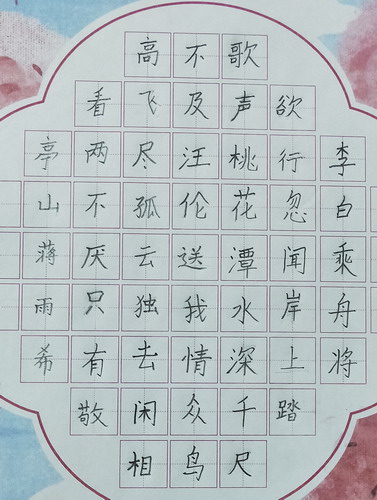 李白乘舟将
欲行忽闻岸上踏
歌声桃花潭水深千尺
不及汪伦送我情众鸟
高飞尽孤云独去闲相
看两不厌只有敬
亭山蒋雨希